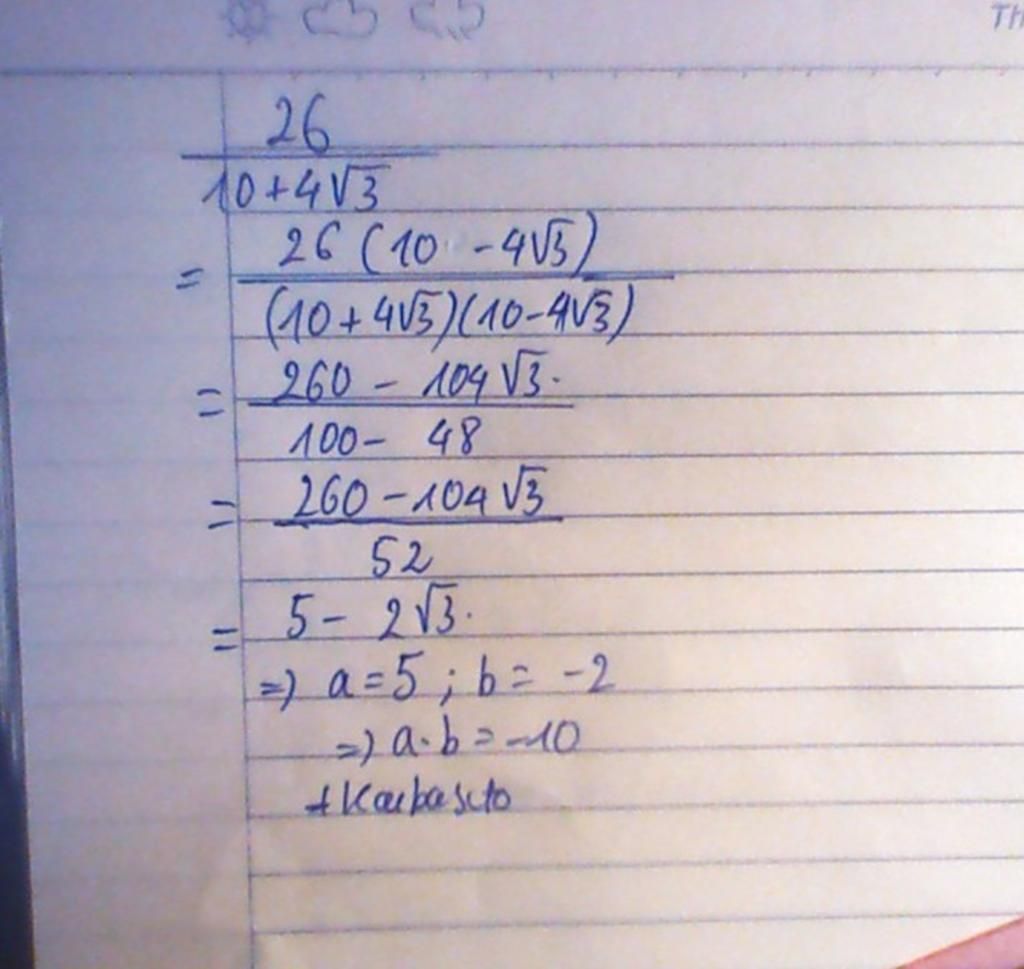 Th
26
10+4√3
= 26 (10 - 4√3)
(10+4√3)(10-4√3)
= 260 - 104√3.
100 - 48
= 260 - 104√3
52
= 5 - 2√3.
=) a = 5 ; b = -2
=) a.b = -10